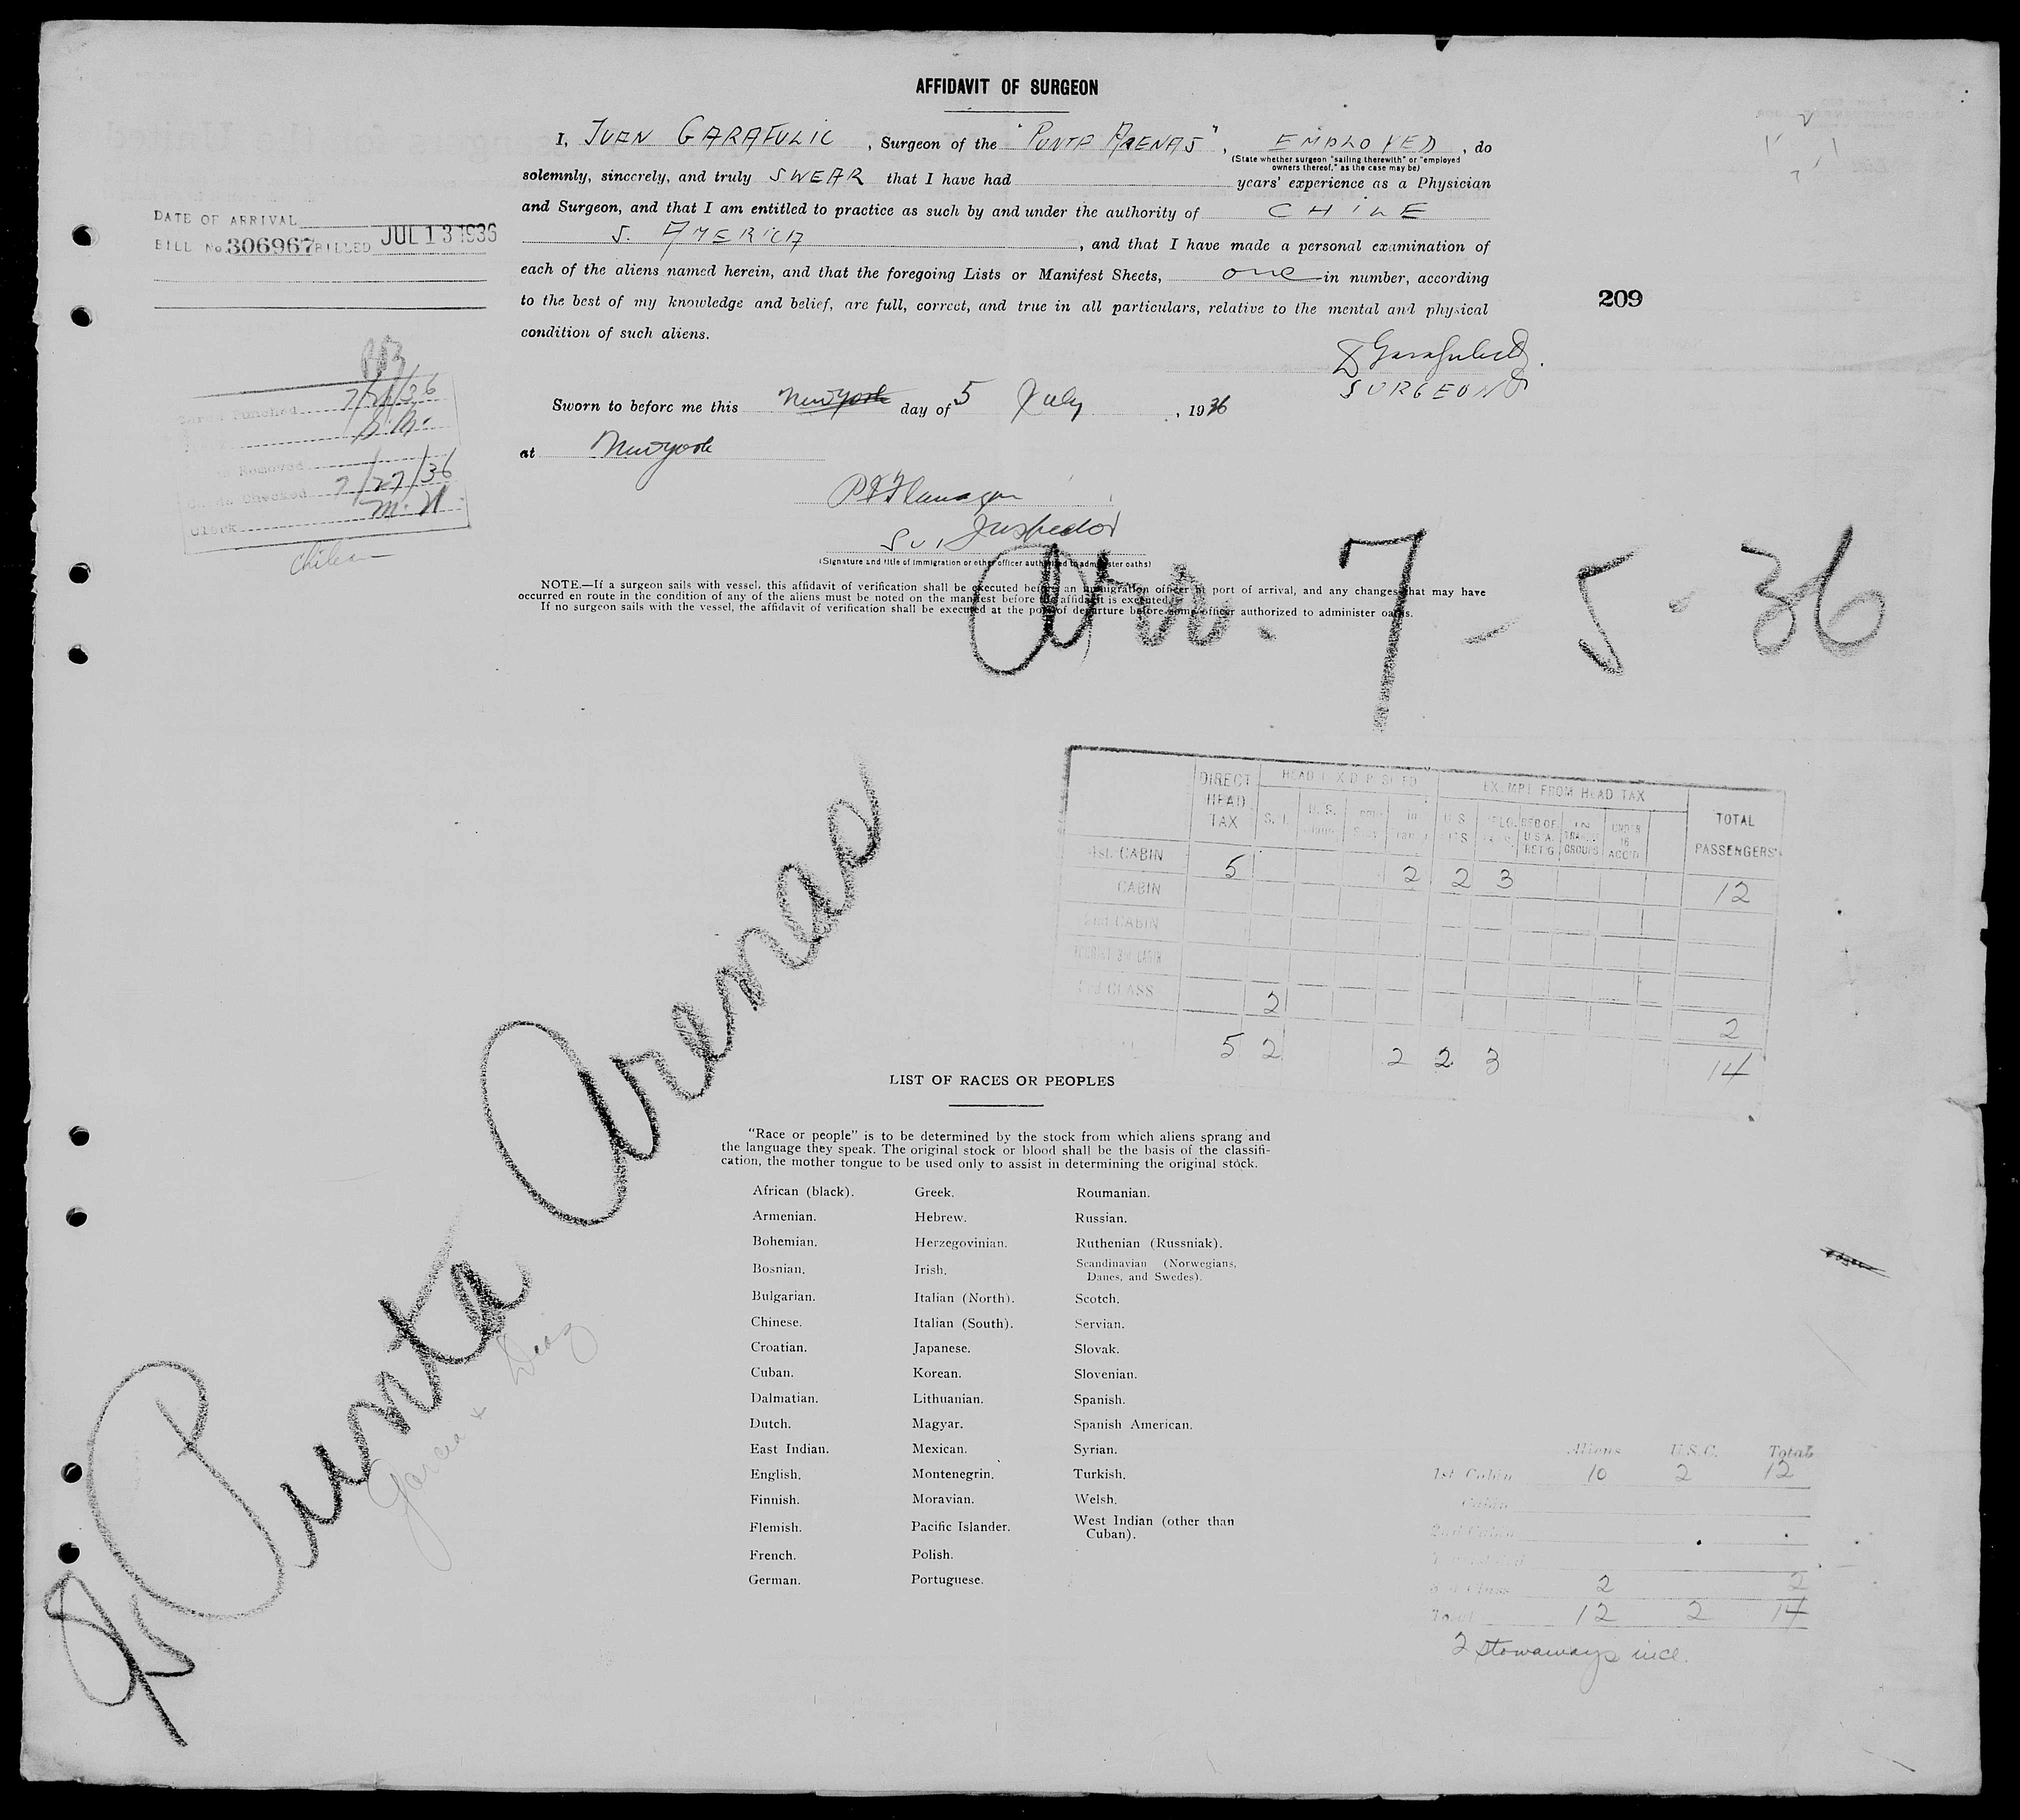 AFFIDAVIT OF SURGEON
I, JUAN GARAFULIC, Surgeon of the "PUNTA ARENAS", EMPLOYED, do
(State whether surgeon "sailing therewith" or "employed
owners thereof," as the case may be)
solemnly, sincerely, and truly SWEAR that I have had years' experience as a Physician
and Surgeon, and that I am entitled to practice as such by and under the authority of CHILE
S. AMERICA, and that I have made a personal examination of
each of the aliens named herein, and that the foregoing Lists or Manifest Sheets, one in number, according
to the best of my knowledge and belief, are full, correct, and true in all particulars, relative to the mental and physical
condition of such aliens.
209
DATE OF ARRIVAL
BILL No. 306967 BILLED JUL 13 1936
Garafulic
SURGEON
Sworn to before me this New York day of 5 July, 1936
at New York
P Flanagan
Inspector
(Signature and title of immigration or other officer authorized to administer oaths)
Cards Punched 7/21/36
Removed
Cards Checked 7/27/36
Clerk M. N.
Chilean
NOTE.—If a surgeon sails with vessel, this affidavit of verification shall be executed before an immigration officer at port of arrival, and any changes that may have
occurred en route in the condition of any of the aliens must be noted on the manifest before the affidavit is executed.
If no surgeon sails with the vessel, the affidavit of verification shall be executed at the port of departure before some officer authorized to administer oaths.
Arr. 7-5-36
DIRECT HEAD TAX
EXEMPT FROM HEAD TAX
TOTAL PASSENGERS
1st. CABIN 5 2 2 3 12
CABIN
2nd CABIN
TOURIST 3rd CABIN
3rd CLASS 2 2
5 2 2 2 3 14
SS Punta Arenas
Garcia & Diaz
LIST OF RACES OR PEOPLES
"Race or people" is to be determined by the stock from which aliens sprang and
the language they speak. The original stock or blood shall be the basis of the classifi-
cation, the mother tongue to be used only to assist in determining the original stock.
African (black). Greek. Roumanian.
Armenian. Hebrew. Russian.
Bohemian. Herzegovinian. Ruthenian (Russniak).
Bosnian. Irish. Scandinavian (Norwegians,
Danes, and Swedes).
Bulgarian. Italian (North). Scotch.
Chinese. Italian (South). Servian.
Croatian. Japanese. Slovak.
Cuban. Korean. Slovenian.
Dalmatian. Lithuanian. Spanish.
Dutch. Magyar. Spanish American.
East Indian. Mexican. Syrian.
English. Montenegrin. Turkish.
Finnish. Moravian. Welsh.
Flemish. Pacific Islander. West Indian (other than
Cuban).
French. Polish.
German. Portuguese.
Aliens U.S.C. Total
1st Cabin 10 2 12
Cabin
2nd Cabin
3rd Class 2 2
Total 12 2 14
2 stowaways incl.